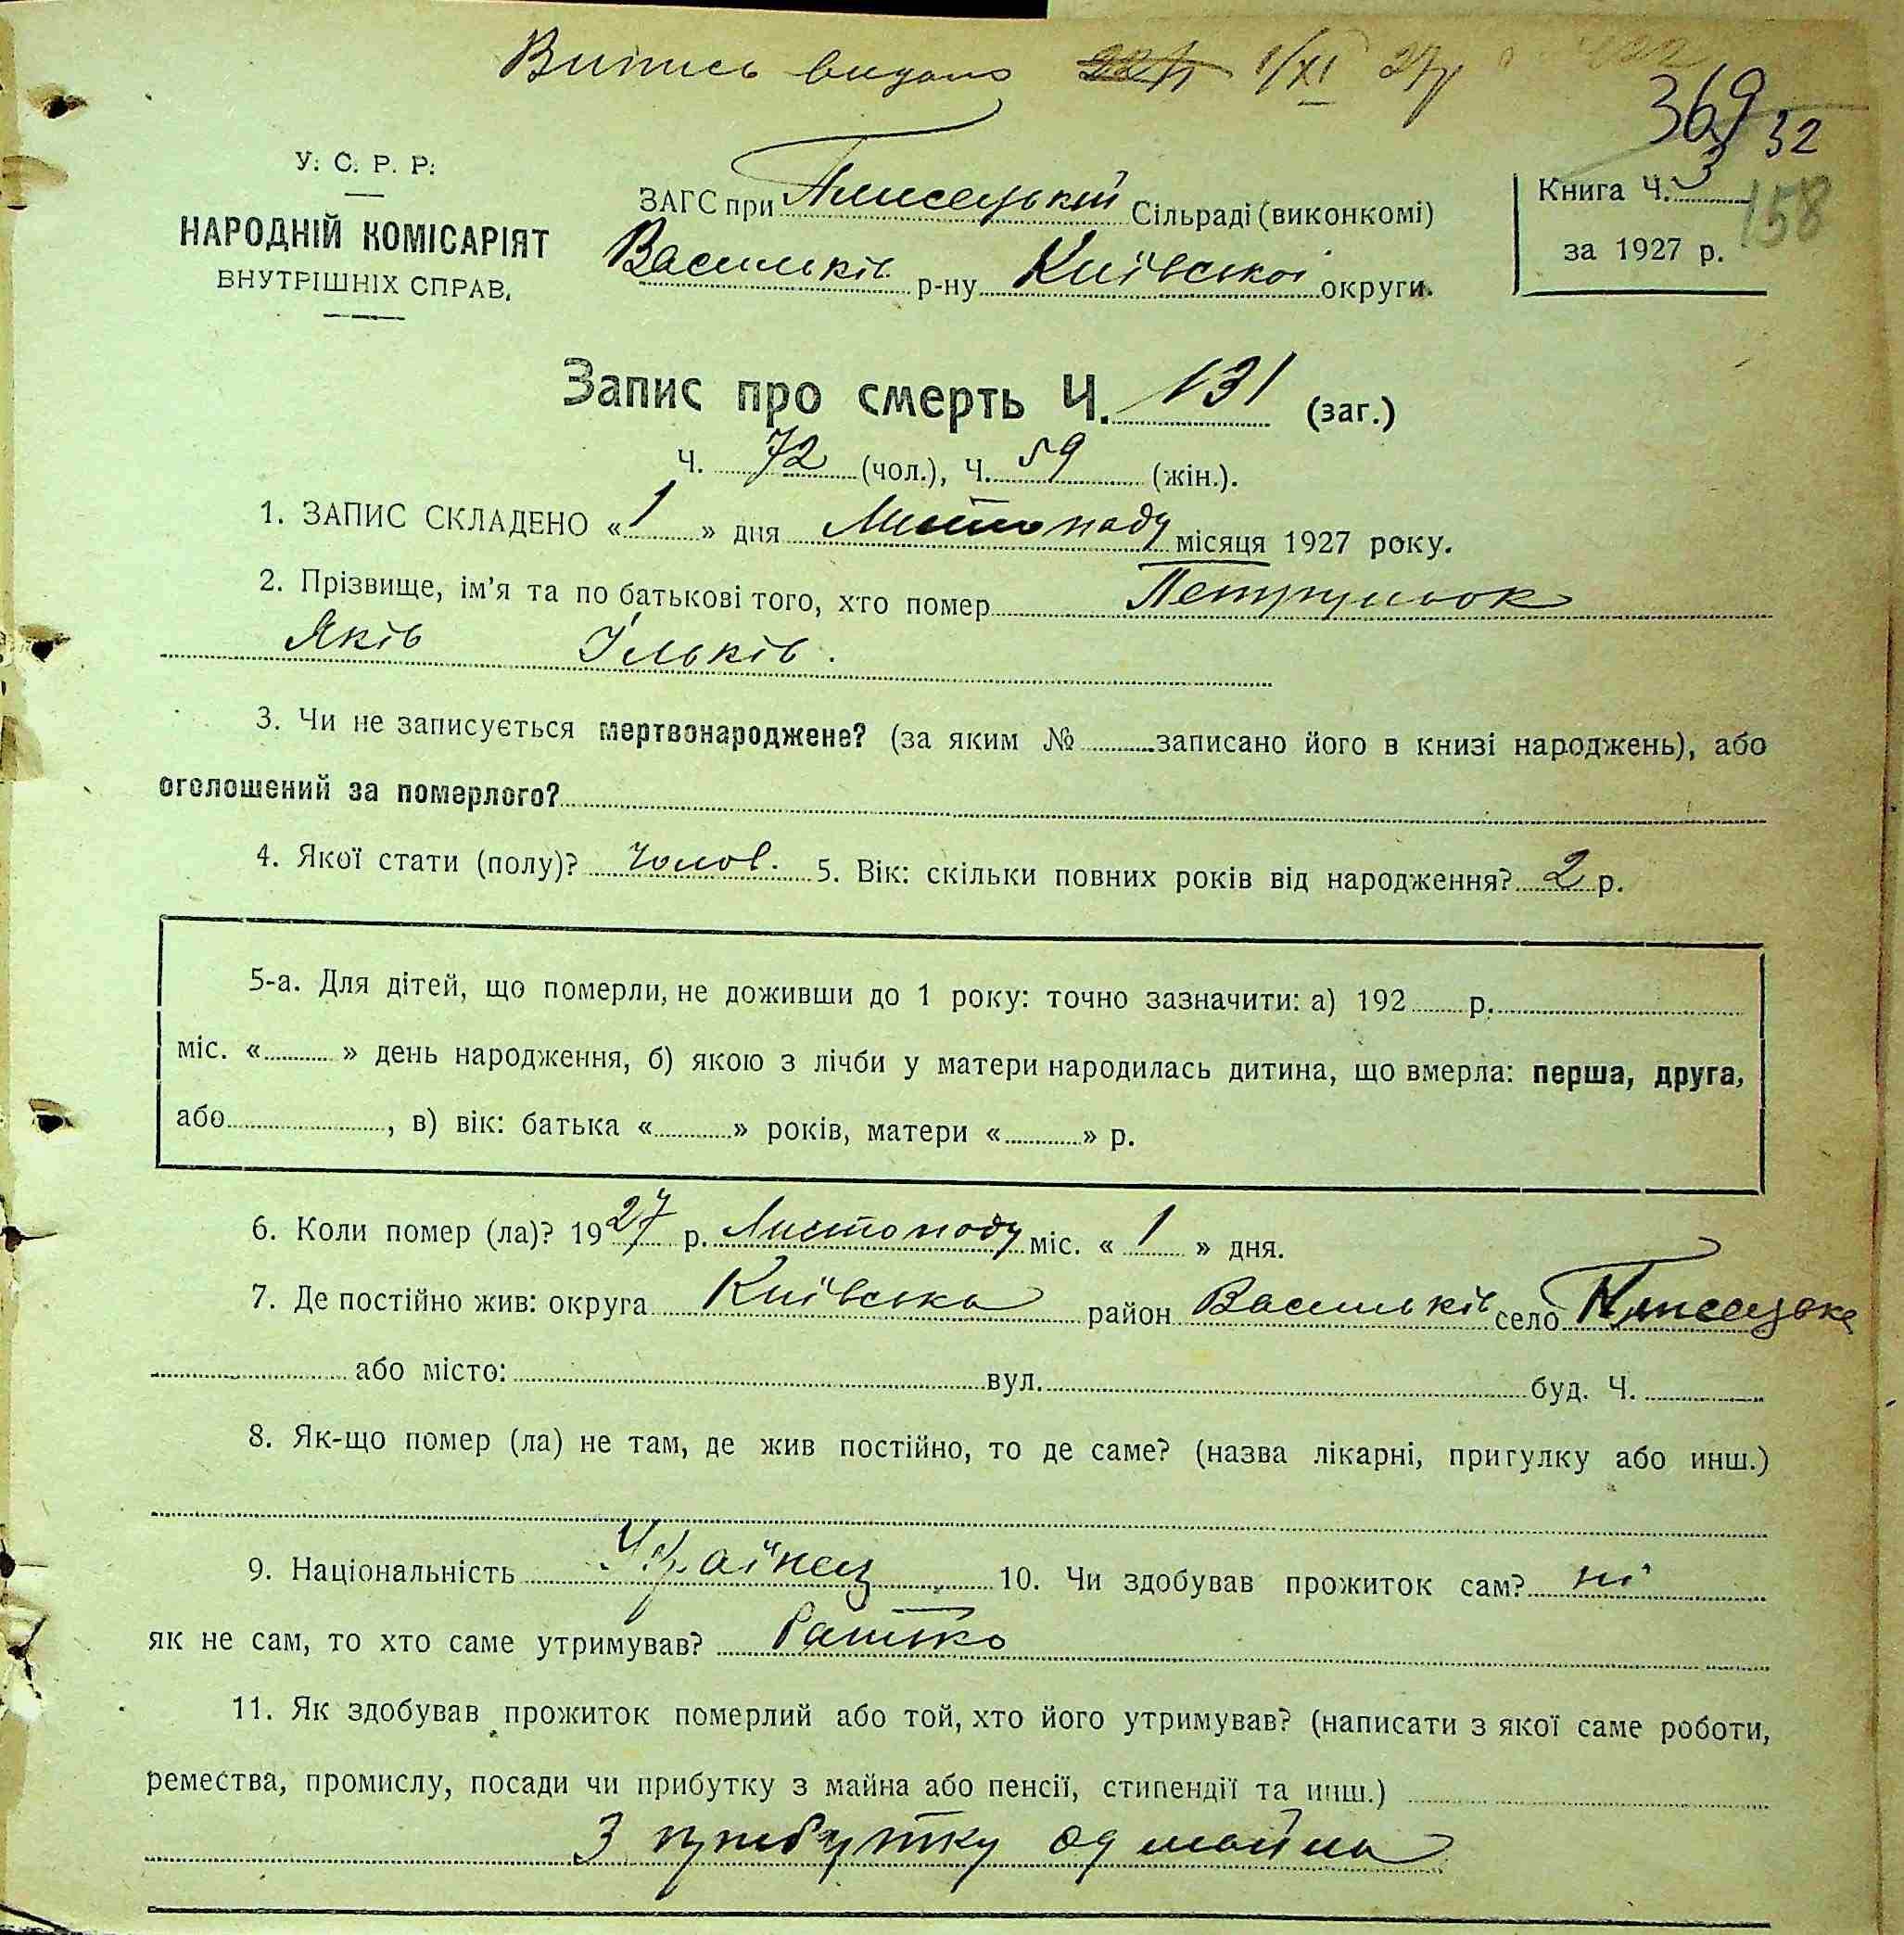 Випись видано 1/XI 27р
369 32
У. С. Р. Р.
НАРОДНІЙ КОМІСАРІЯТ
ВНУТРІШНІХ СПРАВ.
ЗАГС при Плисецькій Сільраді (виконкомі)
Васильків. р-ну Київської округи.
Книга Ч. 3
158
за 1927 р.
Запис про смерть Ч. 131 (заг.)
Ч. 72 (чол.), Ч. 59 (жін.).
1. ЗАПИС СКЛАДЕНО «1» дня Листопаду місяця 1927 року.
2. Прізвище, ім'я та по батькові того, хто помер
Яків Ільків.
3. Чи не записується мертвонароджене? (за яким № записано його в книзі народжень), або
оголошений за померлого?
4. Якої стати (полу)? Чолов. 5. Вік: скільки повних років від народження? 2 р.
5-а. Для дітей, що померли, не доживши до 1 року: точно зазначити: а) 192 р.
міс. « » день народження, б) якою з лічби у матери народилась дитина, що вмерла: перша, друга,
або , в) вік: батька « » років, матери « » р.
6. Коли помер (ла)? 1927 р. Листопаду міс. «1» дня.
7. Де постійно жив: округа Київська район Васильків село Плисецьке
або місто: вул. буд. Ч.
8. Як-що помер (ла) не там, де жив постійно, то де саме? (назва лікарні, пригулку або инш.)
9. Національність Українец 10. Чи здобував прожиток сам? ні
як не сам, то хто саме утримував? Батько
11. Як здобував прожиток померлий або той, хто його утримував? (написати з якої саме роботи,
ремества, промислу, посади чи прибутку з майна або пенсії, стипендії та инш.)
З прибутку од майна